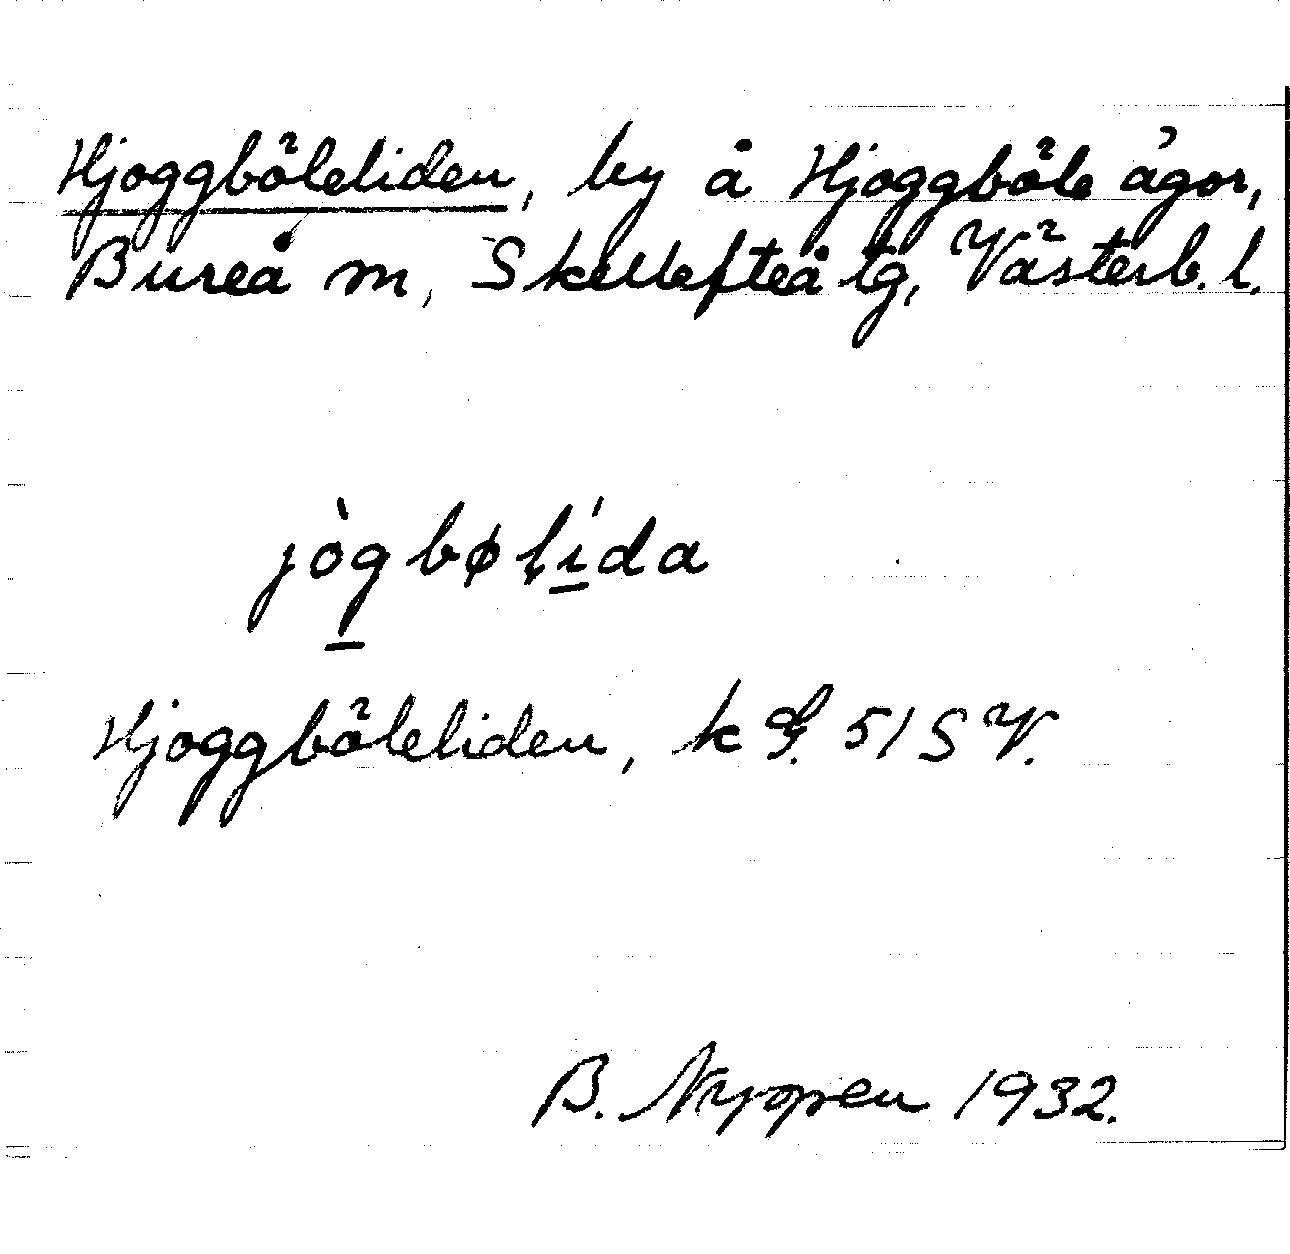 Hjoggböleliden, by å Hjoggböle ägor,
Bureå m, Skellefteå tg, Västerb. l.
jògbøļída
Hjoggböleliden, k G. 51 SV.
B. Nyppen 1932.